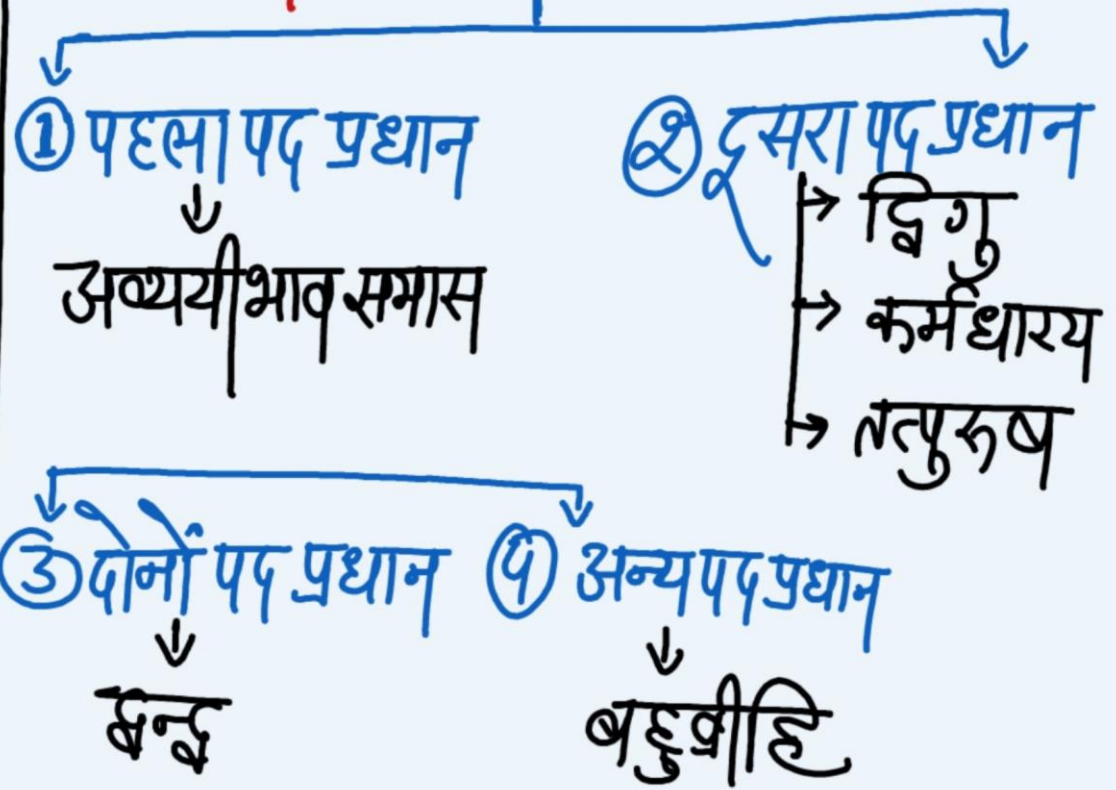 ① पहला पद प्रधान
अव्ययीभाव समास
② दूसरा पद प्रधान
द्विगु
कर्मधारय
तत्पुरुष
③ दोनों पद प्रधान
द्वन्द्व
④ अन्य पद प्रधान
बहुव्रीहि